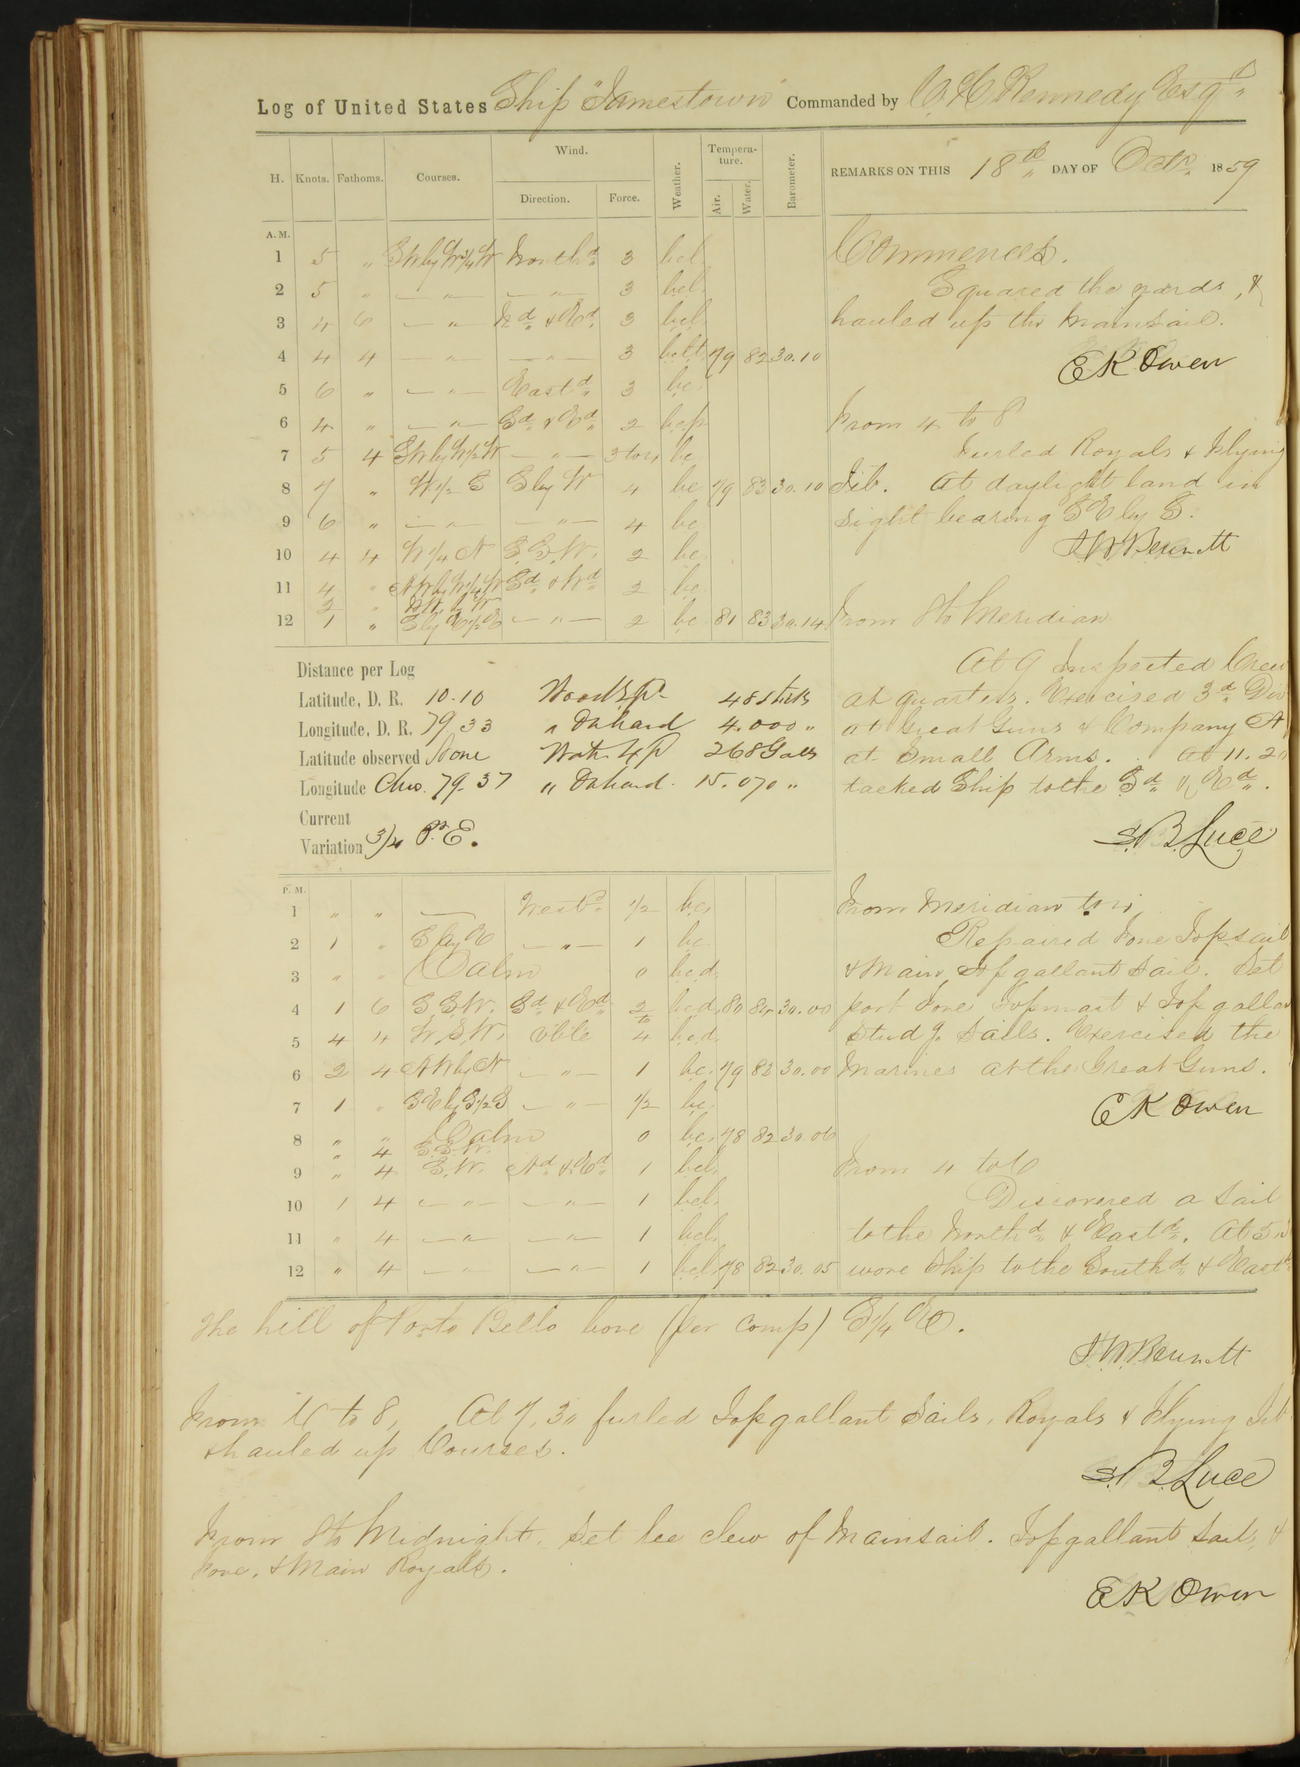 Log of United States Ship "Jamestown" Commanded by C. H. Kennedy Esqr.
H. Knots. Fathoms. Courses. Wind. Direction. Force. Weather. Temperature. Air. Water. Barometer. REMARKS ON THIS 18th DAY OF Octr. 1859
A.M.
1 5 " SW by W 3/4 W Northd. 3 bcl
2 5 " — " — — " — 3 bcl.
3 4 6 — " Nd. & Ed. 3 bcl.
4 4 4 — " — — " — 3 79 82 30.10
5 6 " — " — Eastd. 3 bc.
6 4 " — " — Sd. & Ed. 2 bcp
7 5 4 SW by W 1/2 W — " — 3 to 4 bc
8 7 " W 1/2 S S by W 4 bc 79 83 30.10
9 6 " — " — — " — 4 bc
10 4 4 W 1/4 N S.S.W. 2 bc.
11 4 " NW by W 1/4 W Sd. & Wd. 2 bc
2 " NW. by W
12 1 " S by E 1/2 E — " — 2 bc 81 83 30.14
Commences.
Squared the yards, &
hauled up the Mainsail.
E K Owen
From 4 to 8
Furled Royals & Flying
Jib. At daylight land in
sight bearing SE by S.
J W Bennett
From 8 to Meridian
At 9 Inspected Crew
at quarters. Exercised 3d. Div
at Great Guns & Company A
at Small Arms. At 11.20
tacked Ship to the Sd. & Ed.
S. B. Luce
Distance per Log
Latitude, D. R. 10.10 Wood Xp. 48 sticks
Longitude, D. R. 79.33 " On hand 4.000 "
Latitude observed None Wat. Xp 268 Galls
Longitude Chro. 79.37 " On hand. 15.070 "
Current
Variation 3/4 Pt. E.
P.M.
1 " " — Westd. 1/2 bc.
2 1 " S by E — " — 1 bc
3 " " Calm 0 bc.d.
4 1 6 S.S.W. Sd. & Ed. 2 bcd. 80 84 30.00
to
5 4 4 W.S.W. Vble 4 bc.d.
6 2 4 NW by N — " — 1 bc. 79 82 30.00
7 1 " SE by S 1/2 S — " — 1/2 bc.
8 " " Calm 0 bc. 78 82 30.06
" 4 S.S.W.
9 " 4 S.W. Nd. & Ed. 1 bcl.
10 1 4 — " — — " — 1 bcl.
11 " 4 — " — — " — 1 bcl.
12 " 4 — " — — " — 1 bcl. 78 82 30.05
From Meridian to 4
Repaired Fore Topsail
& Main Top gallant Sail. Set
port Fore Topmast & Top gallan
Studg. Sails. Exercised the
Marines at the Great Guns.
E K Owen
From 4 to 6
Discovered a Sail
to the Northd. & Eastd. At 5
wore Ship to the Southd. & Eastd.
The hill of Porto Bello bore (per comp) S 1/4 E.
J. W. Bennett
From 6 to 8, At 7.30 furled Topgallant Sails, Royals & Flying Jib
& hauled up Courses.
S. B. Luce
From 8 to Midnight. Set lee clew of Mainsail. Topgallant Sails, &
Fore, & Main Royals.
E K Owen